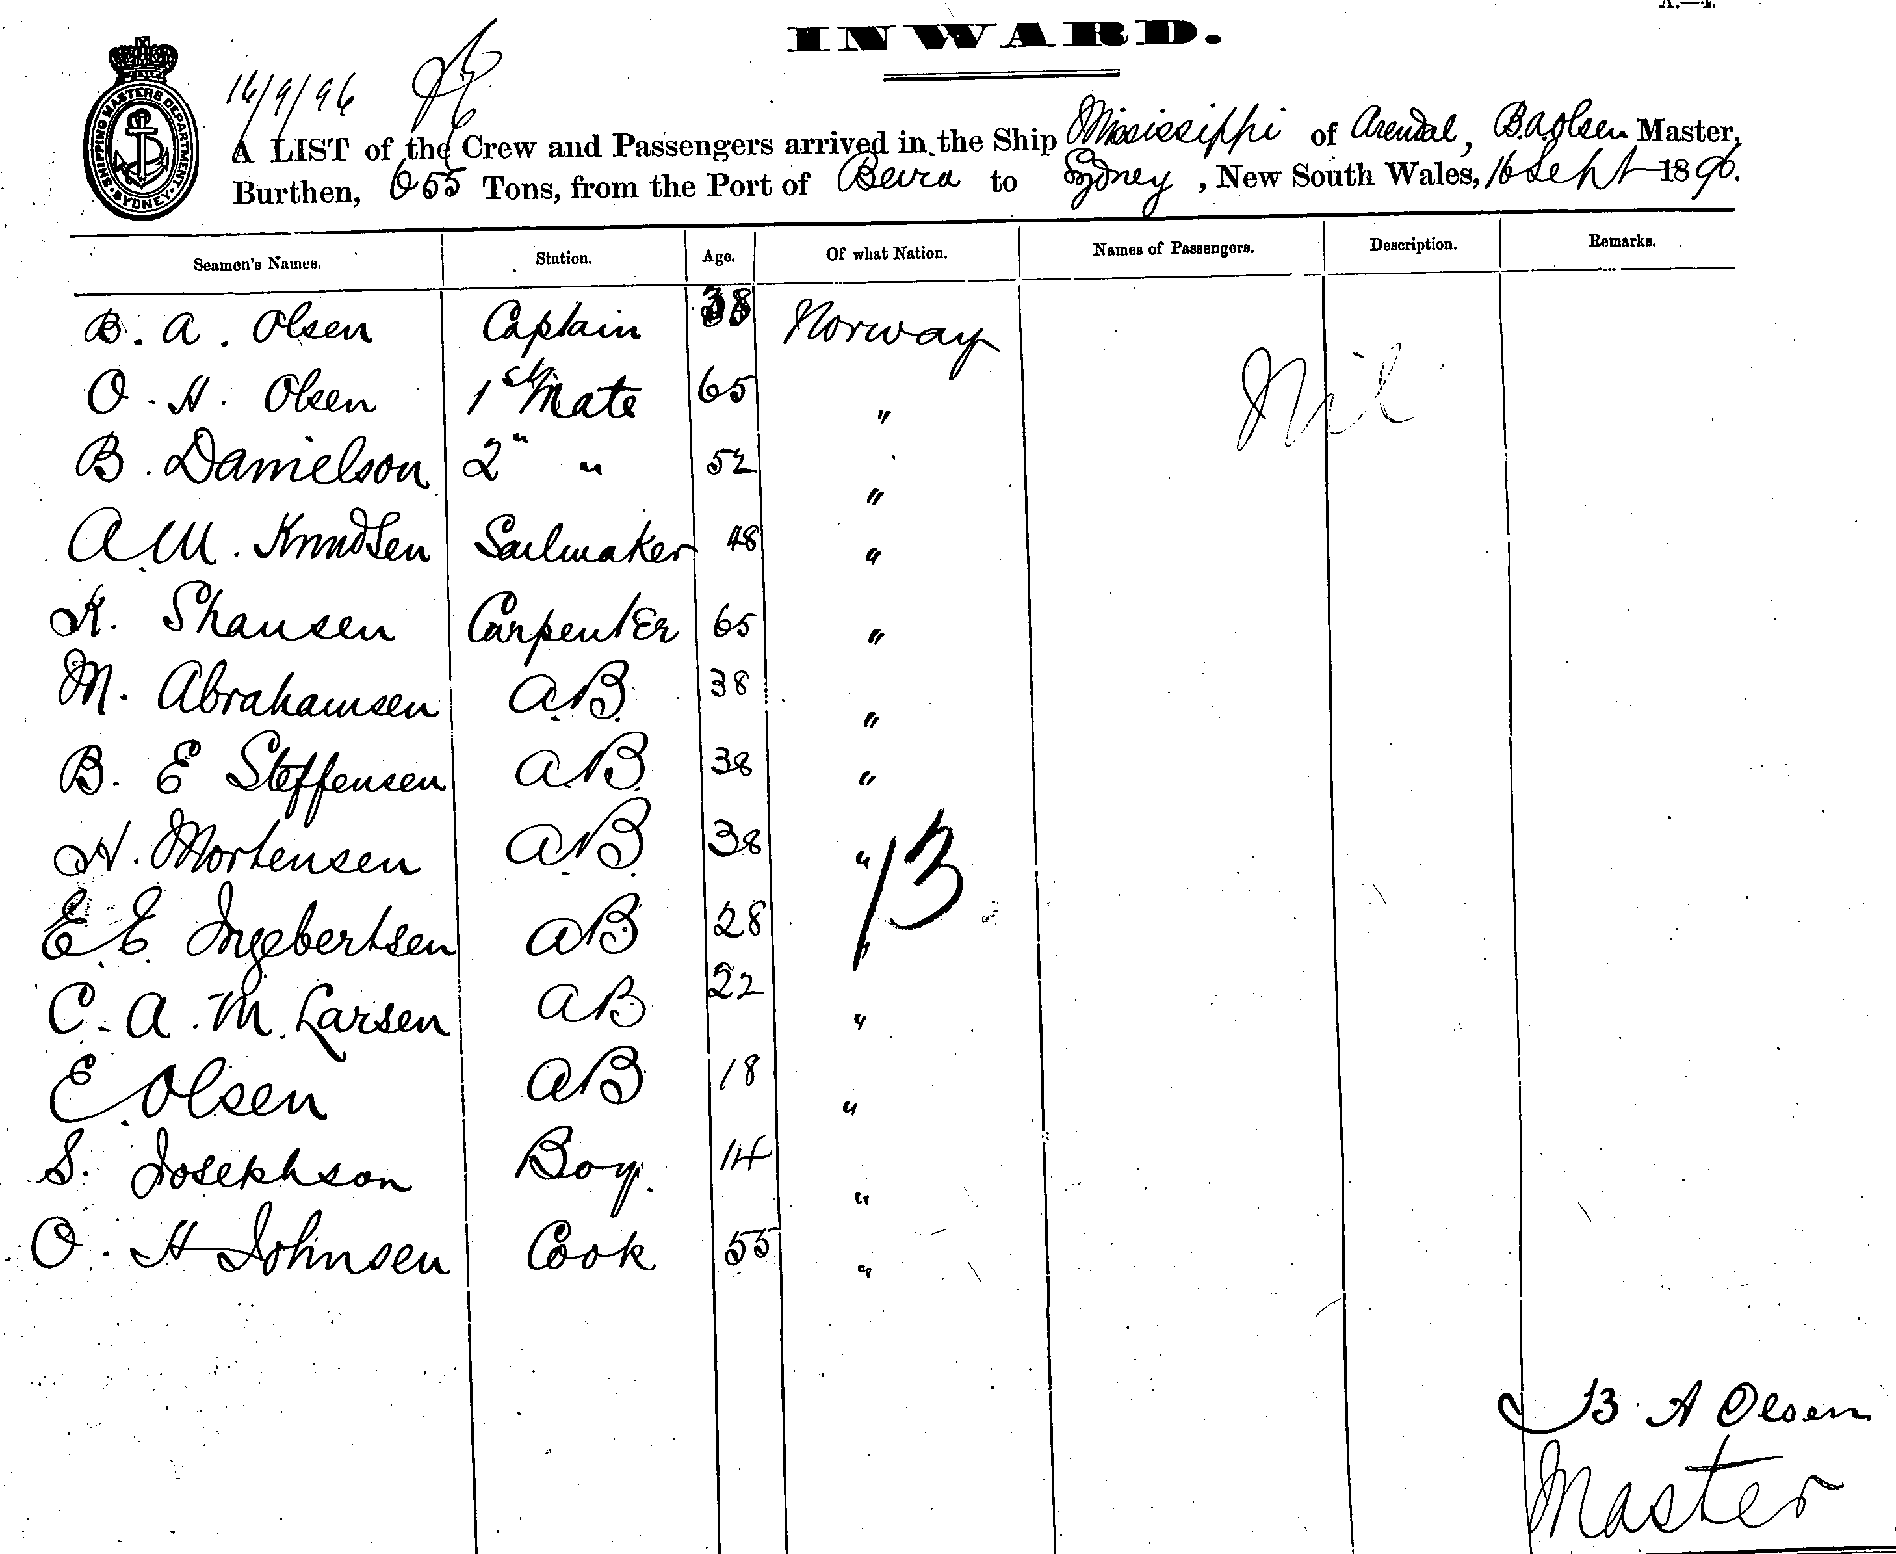 INWARD.
16/9/96
SHIPPING MASTERS DEPARTMENT SYDNEY
A LIST of the Crew and Passengers arrived in the Ship Mississippi of Arendal, B A Olsen Master,
Burthen, 655 Tons, from the Port of Beira to Sydney, New South Wales, 16 Sept 1896.
Seamen's Names. Station. Age. Of what Nation. Names of Passengers. Description. Remarks.
B. A. Olsen Captain 38 Norway
O. H. Olsen 1st Mate 65 "
Nil
B. Danielson 2" " 52 "
A. M. Knudsen Sailmaker 48 "
K. Shansen Carpenter 65 "
M. Abrahamsen A.B. 38 "
B. E Steffensen A.B. 38 "
H. Mortensen A.B. 38 "
13
E. E. Ingebertsen AB 28 "
C. A. M. Larsen AB 22 "
E. Olsen AB 18 "
S. Josephson Boy. 14 "
O. H Johnsen Cook 55 "
B A Olsen
Master